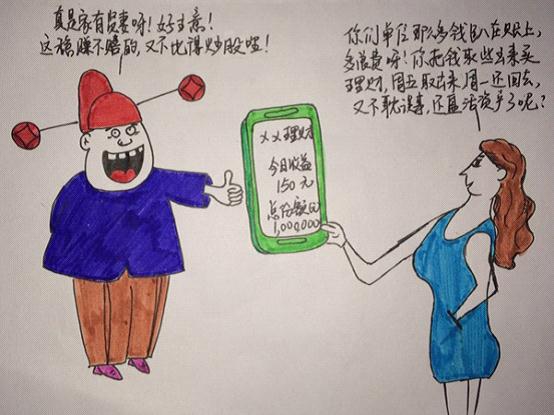 真是家有贤妻呀！好主意！
这稳赚不赔的，又不比得炒股哇！
你们单位那么多钱趴在账上，
多浪费呀！你把钱取些出来买
理财，周五取出来周一还回去，
又不耽误事，还盘活资产了呢？
××理财
今日收益
150元
总份额（元）
1,000,000